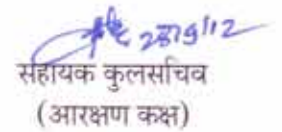 28/9/12
सहायक कुलसचिव
(आरक्षण कक्ष)